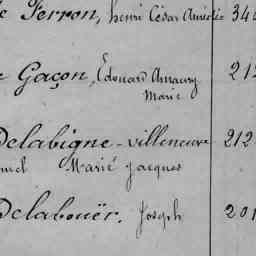 de Ferron, henri César Amédée 340
de Gaçon, Edouard Amaury 212
Marie
Delabigne-villeneuve 212
Marie Jacques
Delabouër. Joseph 201